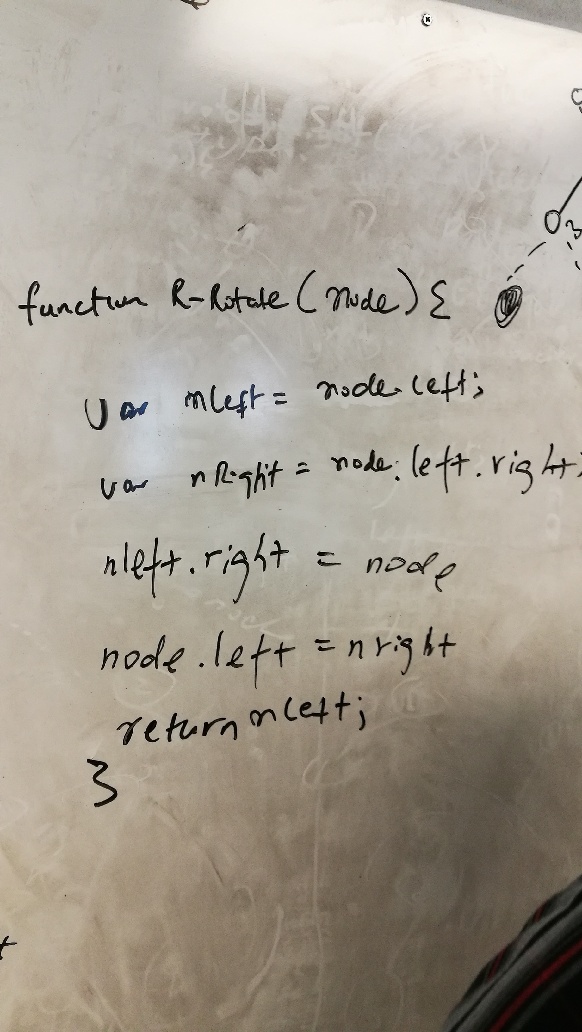 function R-Rotate (node) {
var nleft = node.left;
var nRight = node.left.right;
nleft.right = node
node.left = nright
return nleft;
}
3
t